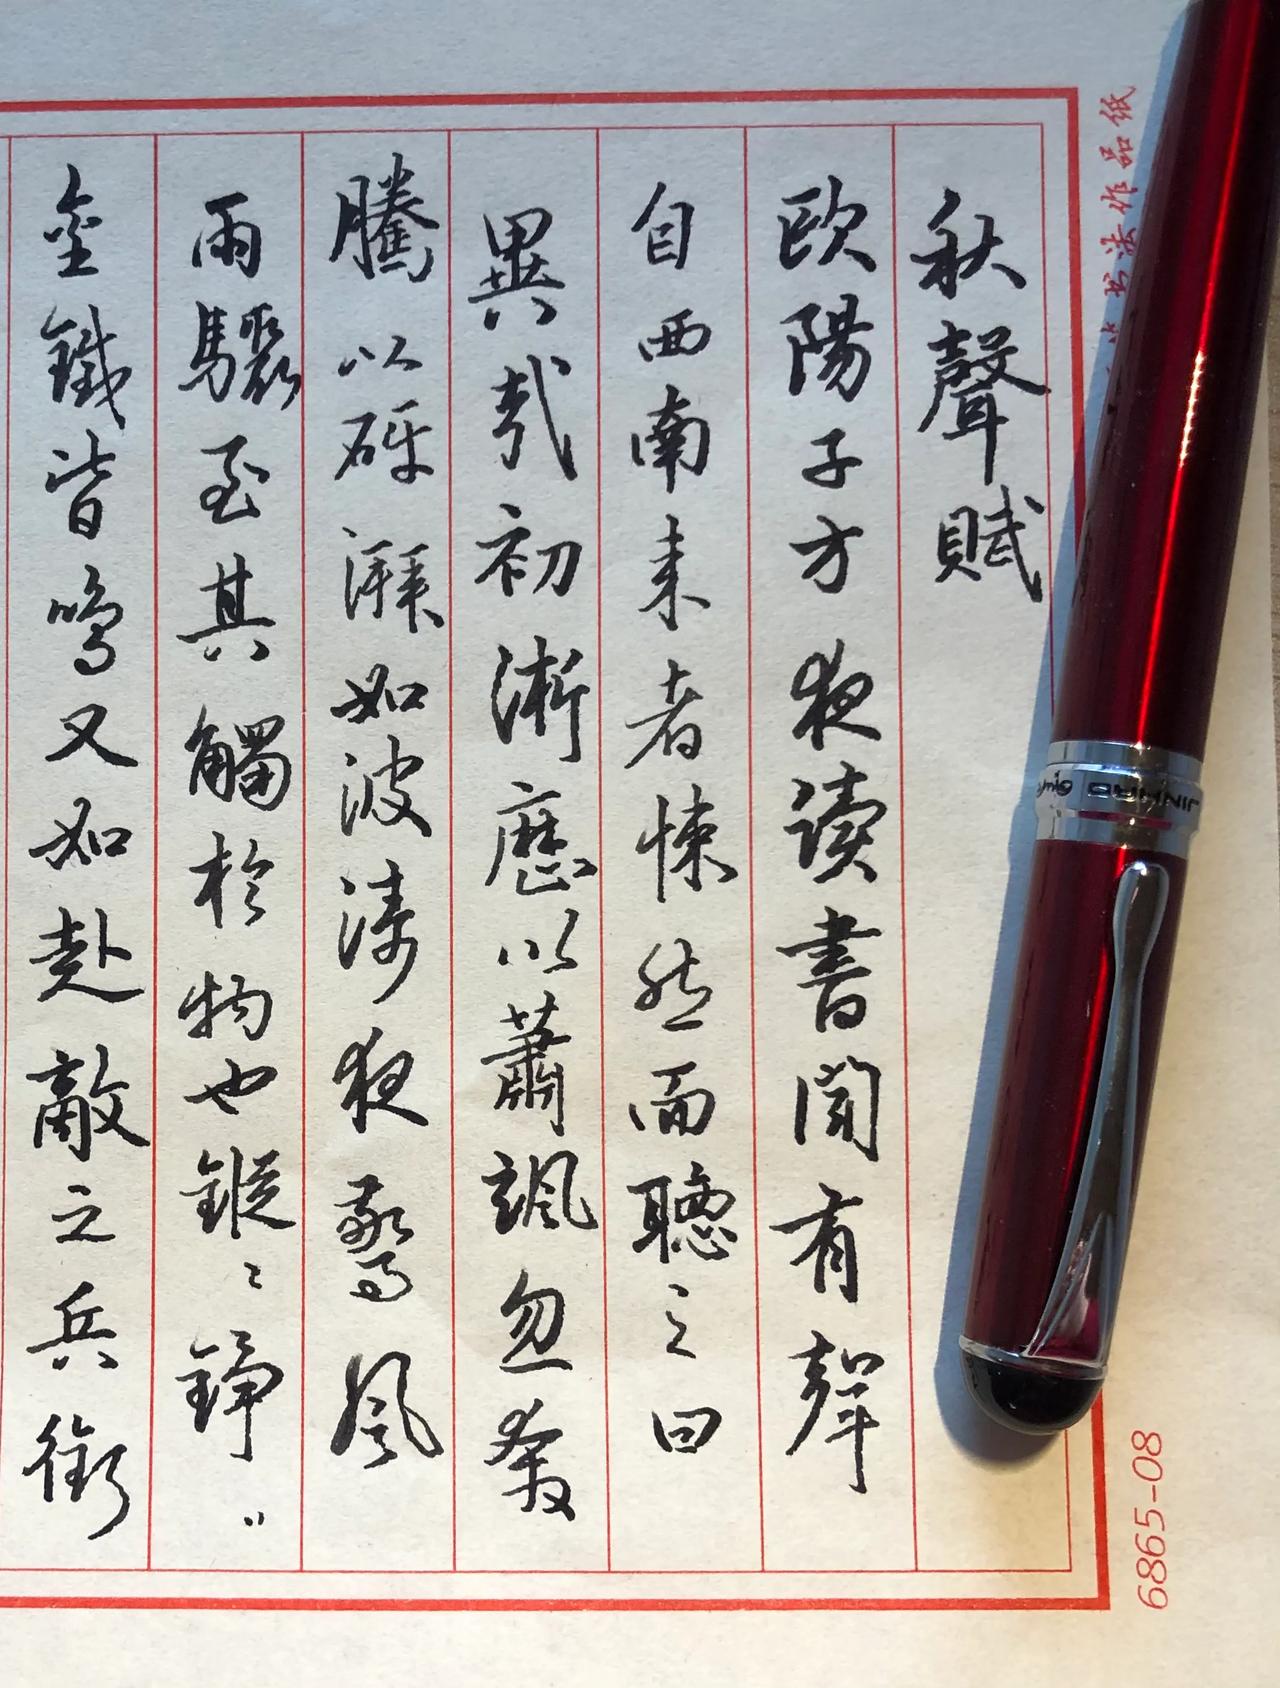 秋聲賦
歐陽子方夜读書聞有聲
自西南来者悚然而聽之曰
異哉初淅瀝以蕭颯忽奔
騰以砰湃如波濤夜驚風
雨驟至其觸於物也鏦〻錚〻
金鐵皆鳴又如赴敵之兵銜
书法作品纸
JINHAO
6865-08